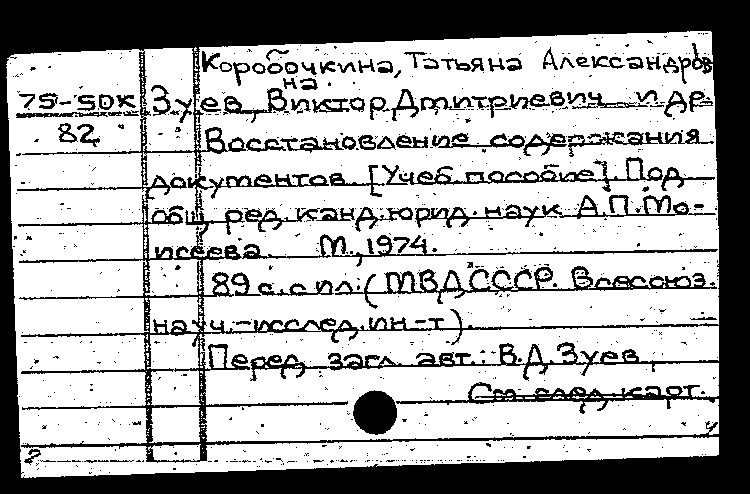 Коробочкина, Татьяна Александров
на.
75-50к Зуев, Виктор Дмитриевич и др
82 Восстановление содержания
документов [Учеб. пособие]. Под
общ. ред. канд. юрид. наук А.П. Мо-
исеева. М., 1974.
89 с. с ил. (МВД СССР. Всесоюз.
науч.-исслед. ин-т).
Перед загл. авт.: В.Д. Зуев,
См. след. карт.
2